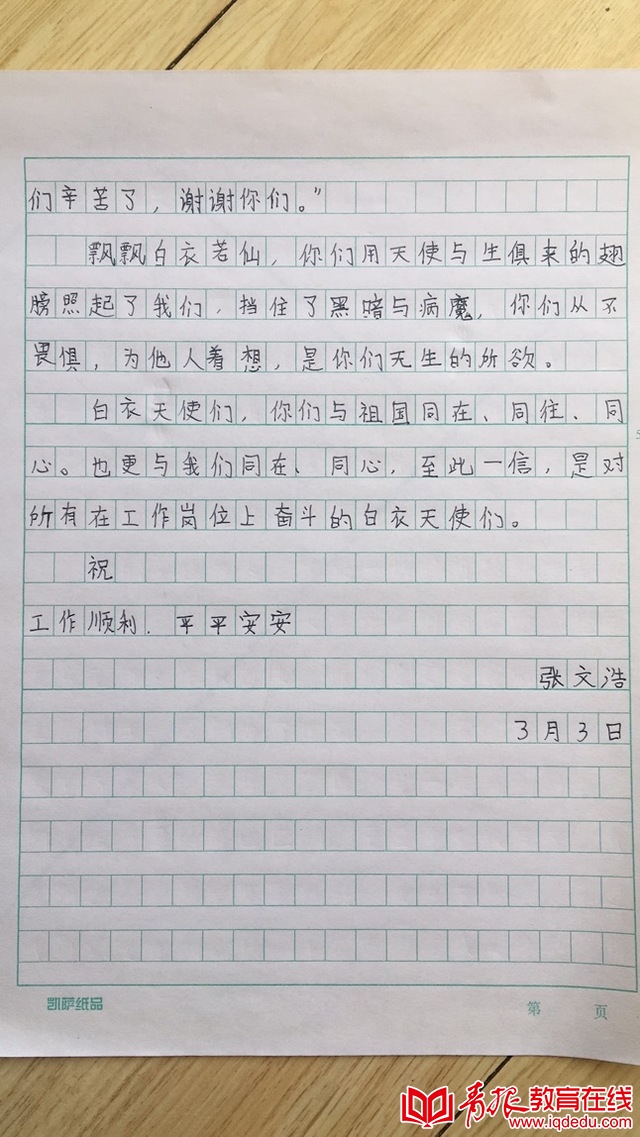 们辛苦了，谢谢你们。”
飘飘白衣若仙，你们用天使与生俱来的翅
膀照起了我们，挡住了黑暗与病魔，你们从不
畏惧，为他人着想，是你们无生的所欲。
白衣天使们，你们与祖国同在、同往、同
心。也更与我们同在、同心，至此一信，是对
所有在工作岗位上奋斗的白衣天使们。
祝
工作顺利．平平安安
张文浩
3月3日
凯萨纸品
第 页
青报教育在线
www.iqdedu.com